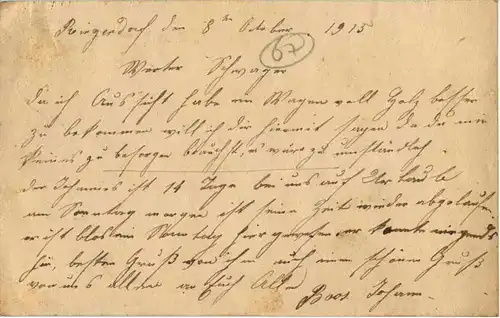 den 8ten October 1915
67
Werter Schwager
da ich Aussicht habe ein Wagen voll Holz besser
zu bekommen will ich dir hiermit sagen da du mir
keines zu besorgen brauchst, es wäre zu umständlich.
der Johannes ist 14 Tage bei uns auf Urlaub
am Sonntag morgen ist seine Zeit wieder abgelaufen
er ist blos ein Sonntag hier gewesen er konnte nirgends
hin, besten Gruß von ihm auch einen schönen Gruß
von uns allen an Euch Alle
Boos. Johann